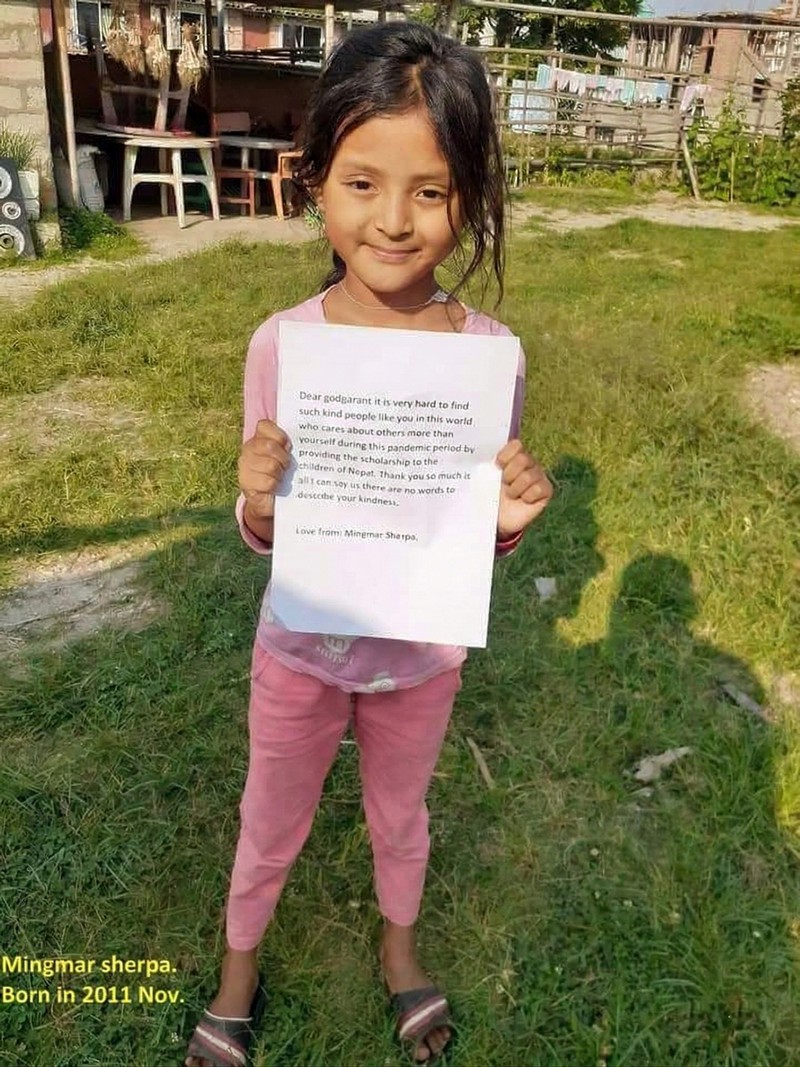 Dear godgarant it is very hard to find
such kind people like you in this world
who cares about others more than
yourself during this pandemic period by
providing the scholarship to the
children of Nepat. Thank you so much is
all I can say us there are no words to
describe your kindness.
Love from: Mingmar Sharpa.
Mingmar sherpa.
Born in 2011 Nov.